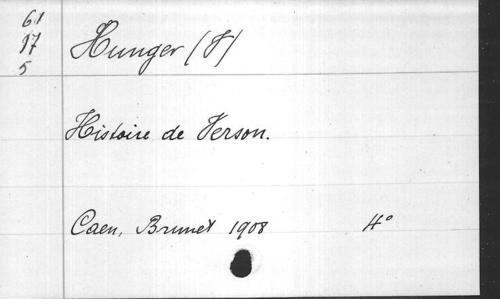 61
17
5
Hunger (V)
Histoire de Verson.
Caen, Brunet 1908 4°